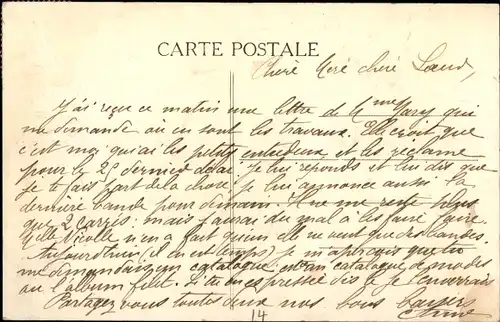 CARTE POSTALE
Chère Mère chère Sœur,
J'ai reçu ce matin une lettre de Mme Jary qui
me demande où en sont les travaux. Elle croit que
c'est moi qui ai les petits entredeux et les réclame
pour le 25 dernier délai. Je lui réponds et lui dis que
je te fais part de la chose je lui annonce aussi la
dernière bande pour demain. Il ne me reste plus
que 2 carrés: mais j'aurai du mal à les faire faire
Melle Nicolle n'en a fait qu'un elle ne veut que des bandes.
Aujourd'hui (il en est temps) je m'aperçois que tu
me demandais un catalogue: un catalogue de modes
ou l'album filet. Si tu es pressée dis le je l'enverrais
Partagez vous toutes deux nos bons baisers
14